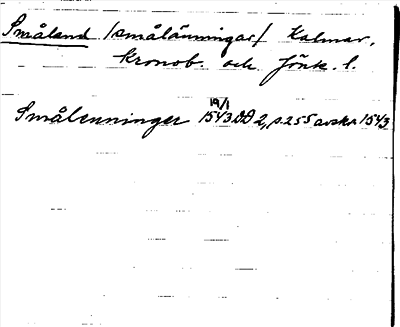 Småland /smålänningar/ Kalmar,
kronob. och Jönk. l.
19/1
Smålenninger 1543 DD 2, s. 255 avskr. 1543